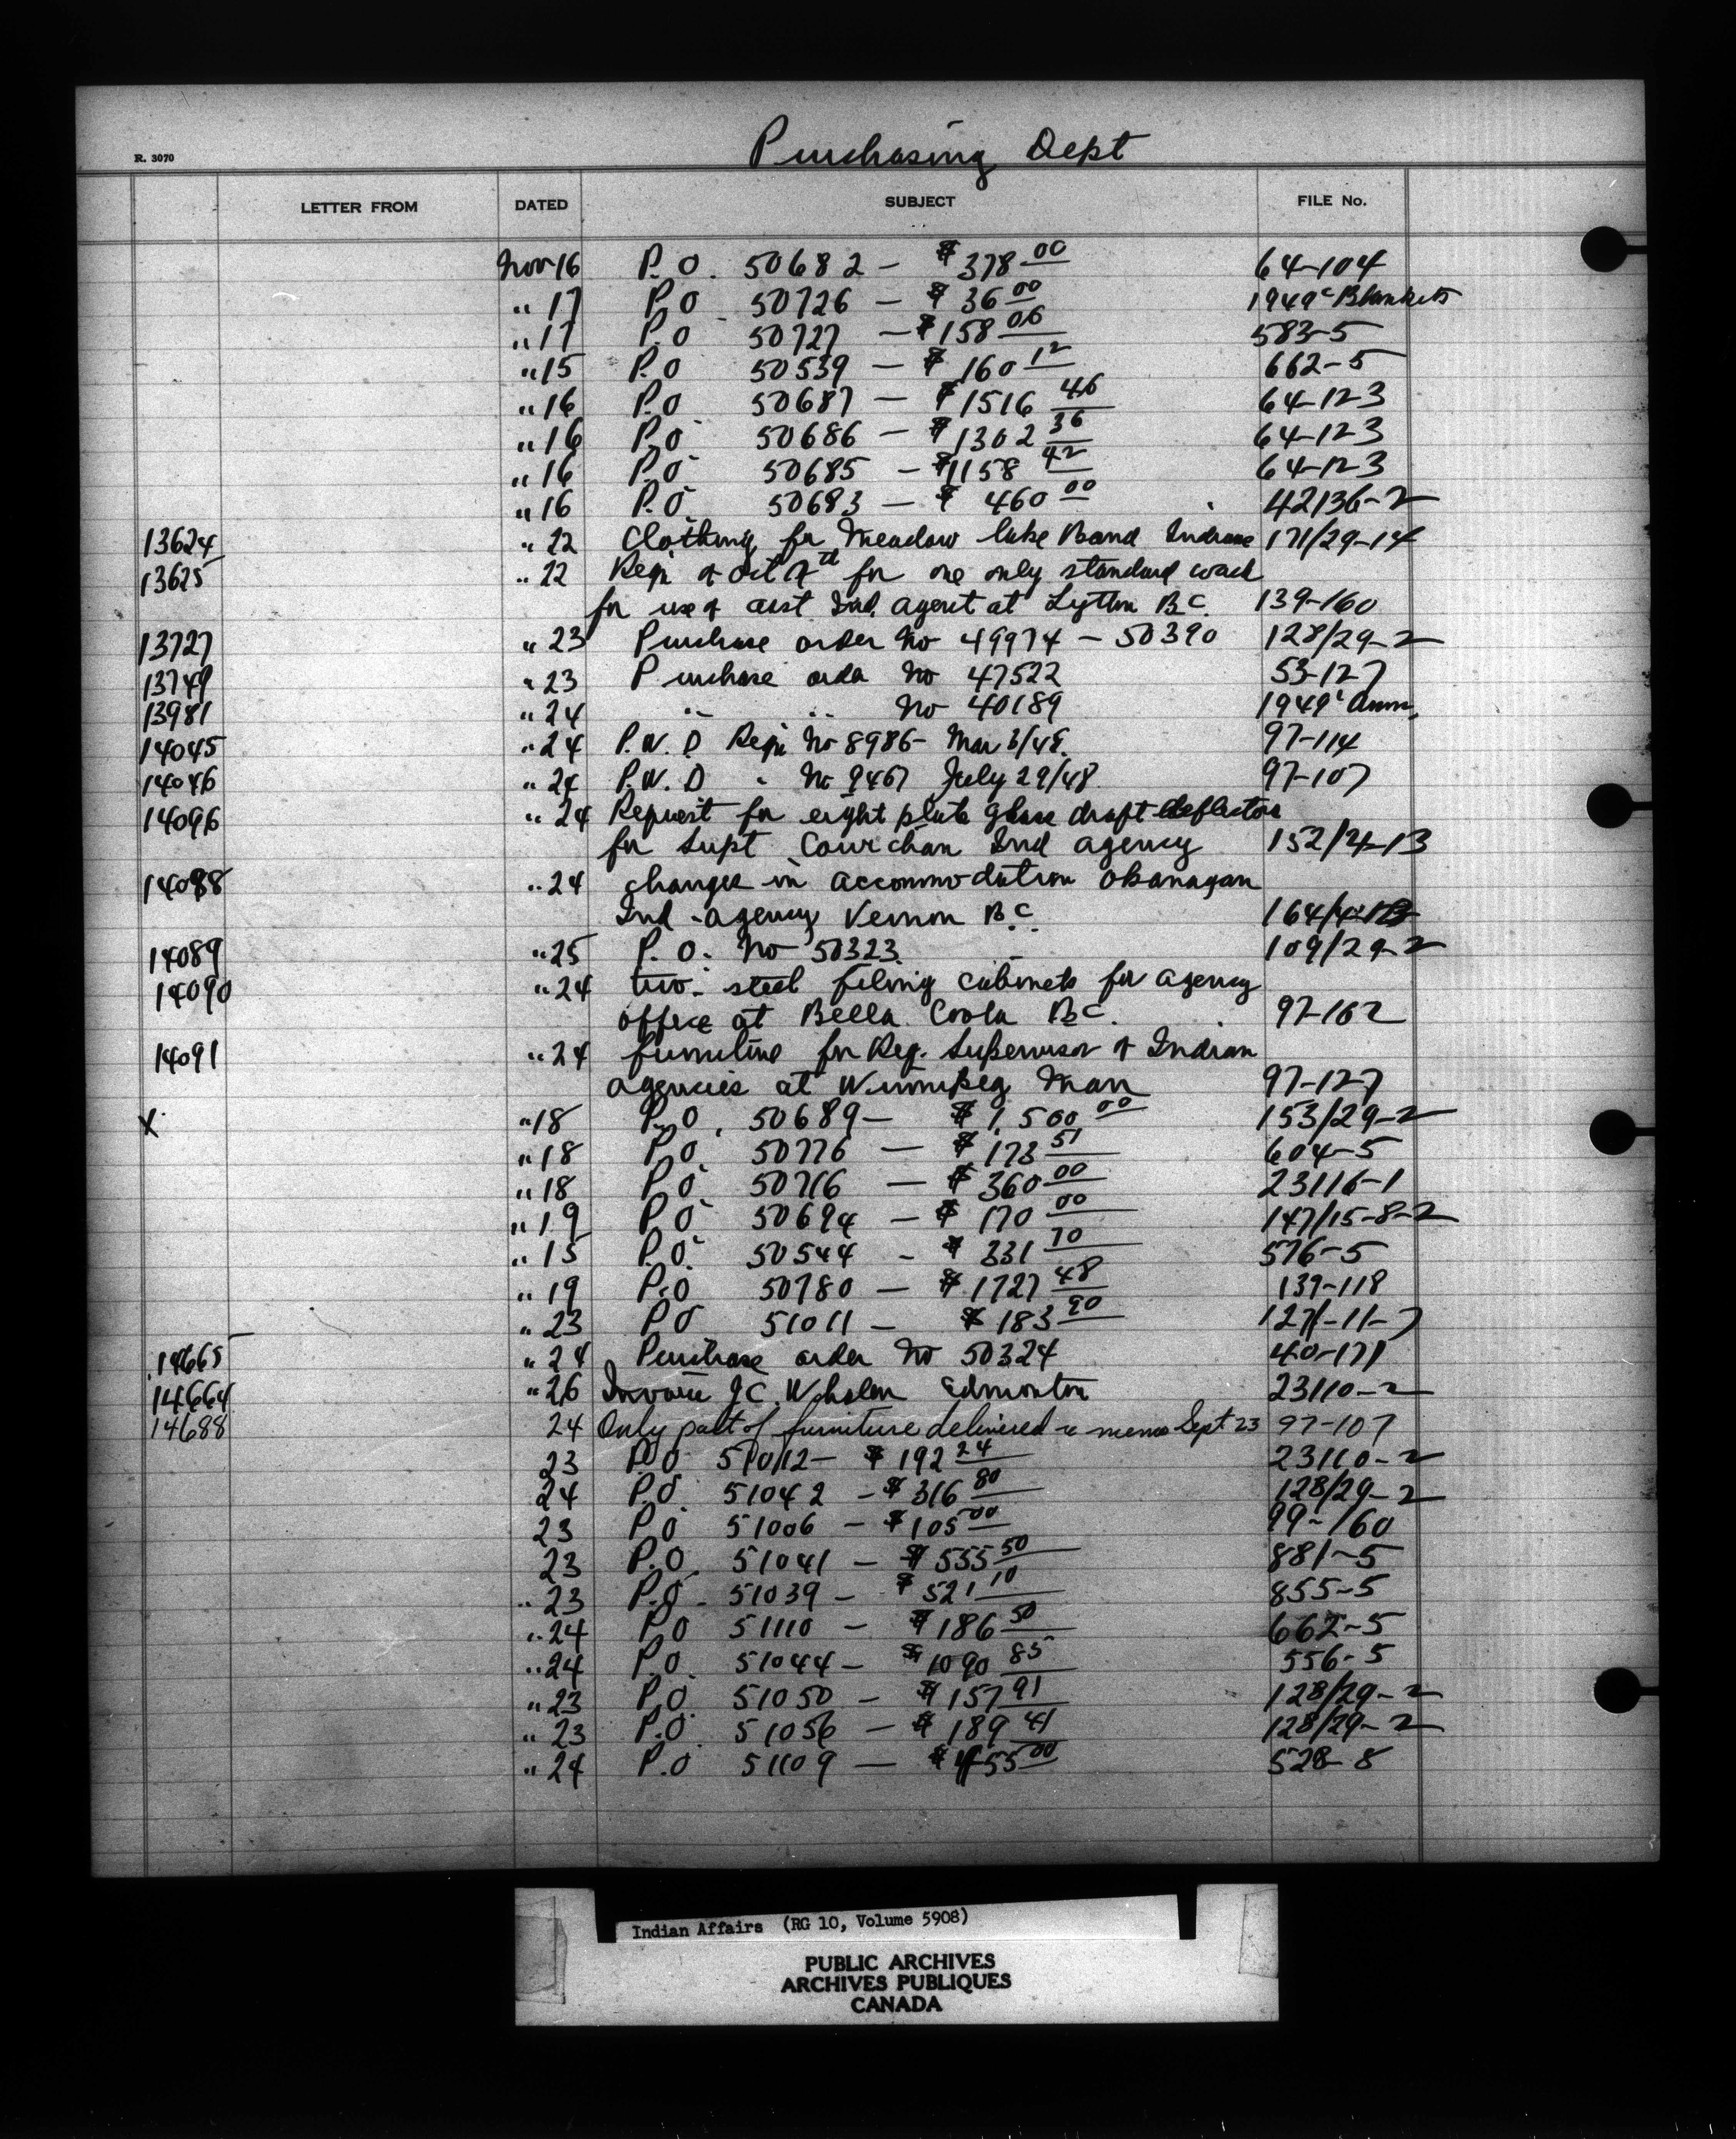 Purchasing Dept
R. 3070
LETTER FROM DATED SUBJECT FILE No.
Nov 16 P.O. 50682 - $378 00 64-104
" 17 P.O 50726 - $36 00 1949 c Blankets
" 17 P.O 50727 - $158 06 583-5
" 15 P.O 50539 - $160 12 662-5
" 16 P.O 50687 - $1516 46 64-123
" 16 P.O 50686 - $1302 36 64-123
" 16 P.O 50685 - $1158 42 64-123
" 16 P.O. 50683 - $460 00 42136-2
13624 " 22 Clothing for Meadow lake Band Indians 171/29-14
13625 " 22 Reqn of Oct 7th for one only standard
for use of asst Ind. agent at Lytton B C. 139-160
13727 " 23 Purchase order No 49974 - 50390 128/29-2
13749 " 23 Purchase order No 47522 53-127
13981 " 24 " " No 40189 1949 c Amm.
14045 " 24 P.W.D Reqn No 8986 - Mar 3/48. 97-114
14046 " 24 P.W.D " No 9467 July 29/48 97-107
14096 " 24 Request for eight plate glass draft deflectors
for Supt Cowichan Ind agency 152/4-13
14088 " 24 changes in accommodation Okanagan
Ind - agency Vernon B C. 164/4-13
14089 " 25 P.O. No 50323. 109/29-2
14090 " 24 two - steel filing cabinets for agency
office at Bella Coola B C. 97-162
14091 " 24 furniture for Reg. Supervisor of Indian
agencies at Winnipeg Man 97-127
X " 18 P.O. 50689 - $1,500 00 153/29-2
" 18 P.O 50776 - $173 51 604-5
" 18 P.O 50716 - $360 00 23116-1
" 19 P.O 50694 - $170 00 147/15-8-2
" 15 P.O. 50544 - $331 70 576-5
" 19 P.O 50780 - $1727 48 139-118
" 23 P.O 51011 - $183 90 127/-11-7
14665 " 24 Purchase order No 50324 40-171
14664 " 26 Invoice J C. Whalen Edmonton 23110-2
14688 24 Only part of furniture delivered re memo Sept. 23 97-107
23 P.O 51012 - $192 24 23110-2
24 P.O. 51042 - $316 80 128/29-2
23 P.O 51006 - $105 00 99-160
23 P.O. 51041 - $555 50 881-5
" 23 P.O. 51039 - $521 10 855-5
" 24 P.O 51110 - $186 50 662-5
" 24 P.O. 51044 - $1090 85 556-5
" 23 P.O. 51050 - $157 91 128/29-2
" 23 P.O. 51056 - $189 41 128/29-2
" 24 P.O 51109 - 528-8
Indian Affairs (RG 10, Volume 5908)
PUBLIC ARCHIVES
ARCHIVES PUBLIQUES
CANADA